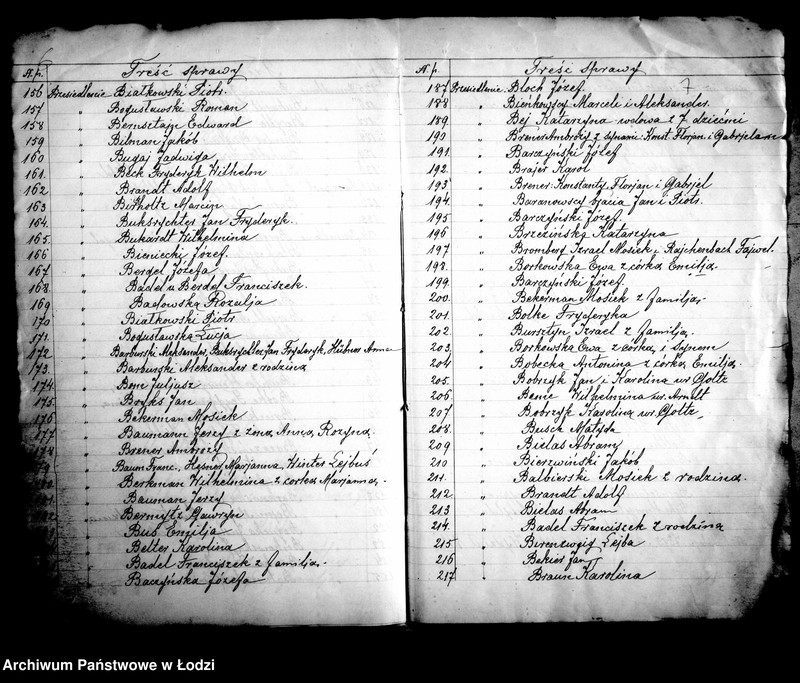 N. p. Treść sprawy
156 Przesiedlenie Białkowski Piotr.
157 „ Bogusławski Roman
158 „ Bernsztajn Edward
159 „ Bitman Jakób
160 „ Bugaj Jadwiga
161. „ Beck Fryderyk Wilhelm
162 „ Brandt Adolf
163 „ Birholtz Marcin
164. „ Buksrychter Jan Fryderyk.
165. „ Bukardt Wilhelmina
166 „ Bieniecki Józef.
167 „ Berdel Józefa
168 „ Badel v Berdel Franciszek.
169 „ Badowska Rozalja
170 „ Białkowski Piotr
171. „ Bogusławska Łucja
172 „ Barburski Aleksander, Buksrychter Jan Fryderyk, Hübner Anna
173. „ Barburski Aleksander z rodziną
174. „ Bone Juljusz
175. „ Boyks Jan
176 „ Bekerman Mosiek
177 „ Baumann Jerzy z żoną Anną Rozyną.
178 „ Brener Ambroży
79 „ Baum Franc., Hajsner Marjanna, Winter Lejbuś
„ Berkman Wilhelmina z córką Marjanną.
„ Bauman Jerzy
„ Bermytz Gawrzyn
„ Bus Emilja
„ Belter Karolina
„ Badel Franciszek z familją.
„ Baczyńska Józefa
7
N. p. Treść sprawy
187 Przesiedlenie. Bloch Józef.
188 „ Bieńkowscy Marceli i Aleksander.
189 „ Bej Katarzyna wdowa z 7 dziećmi
190 „ Brener Ambroży z synami: Konst. Florjan. i Gabrjelem
191. „ Barczyński Józef
192. „ Brajer Karol
193 „ Brener: Konstanty, Florjan i Gabrjel
194. „ Baranowscy bracia Jan i Piotr.
195 „ Barczyński Józef.
196 „ Brzezińska Katarzyna
197 „ Bromberg Izrael Mosiek i Rajchenbach Fajwel.
198. „ Borkowska Ewa z córką Emilją.
199. „ Barczyński Józef.
200. „ Bekerman Mosiek z familją.
201. „ Bolke Fryderyka
202. „ Bursztyn Izrael z familją.
203. „ Borkowska Ewa z córką i synem
204 „ Bobecka Antonina z córką Emilją.
205. „ Bobrzyk Jan i Karolina ur. Goltz
206. „ Benie Wilhelmina ur. Arndt
207 „ Bobrzyk Karolina ur. Goltz
208. „ Busch Matylda
209 „ Bielas Abram
210 „ Bierzwiński Jakób
211. „ Balbierski Mosiek z rodziną.
212. „ Brandt Adolf
213 „ Bielas Abram
214. „ Badel Franciszek z rodziną
215 „ Birenzweig Lejba
216 „ Bekier Jan
217 „ Braun Karolina
Archiwum Państwowe w Łodzi